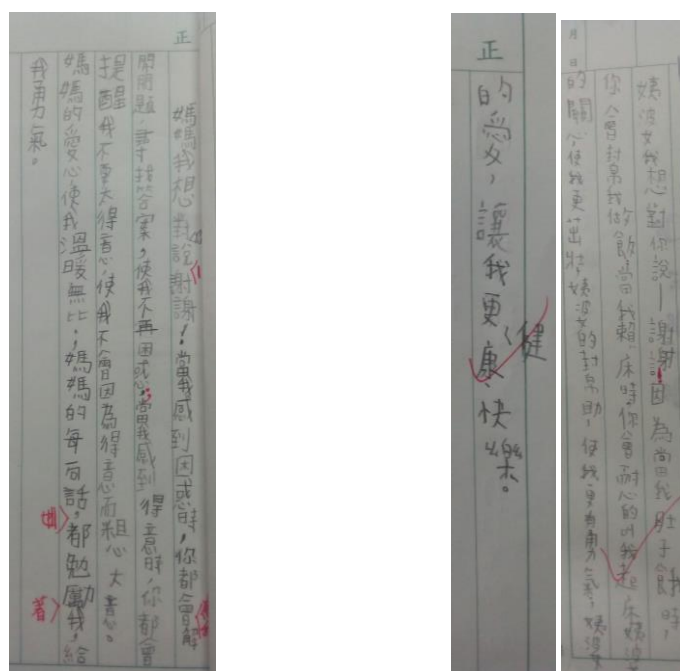 正
媽媽我想對你說謝謝!當我感到困惑時,你都會解
開問題,尋找答案,使我不再困惑;當我感到得意時,你都會
提醒我不要太得意,使我不會因為得意而粗心大意。
媽媽的愛心使我溫暖無比,媽媽的每句話,都勉勵我,給
我勇氣。
著
正
的愛,讓我更健康、快樂。
月
日
姨婆我想對你說—謝謝!因為當我肚子餓時,
你會幫我做飯,當我賴床時,你會耐心的叫我起床姨婆
的關心使我更茁壯,姨婆的幫助,使我更有勇氣,姨婆